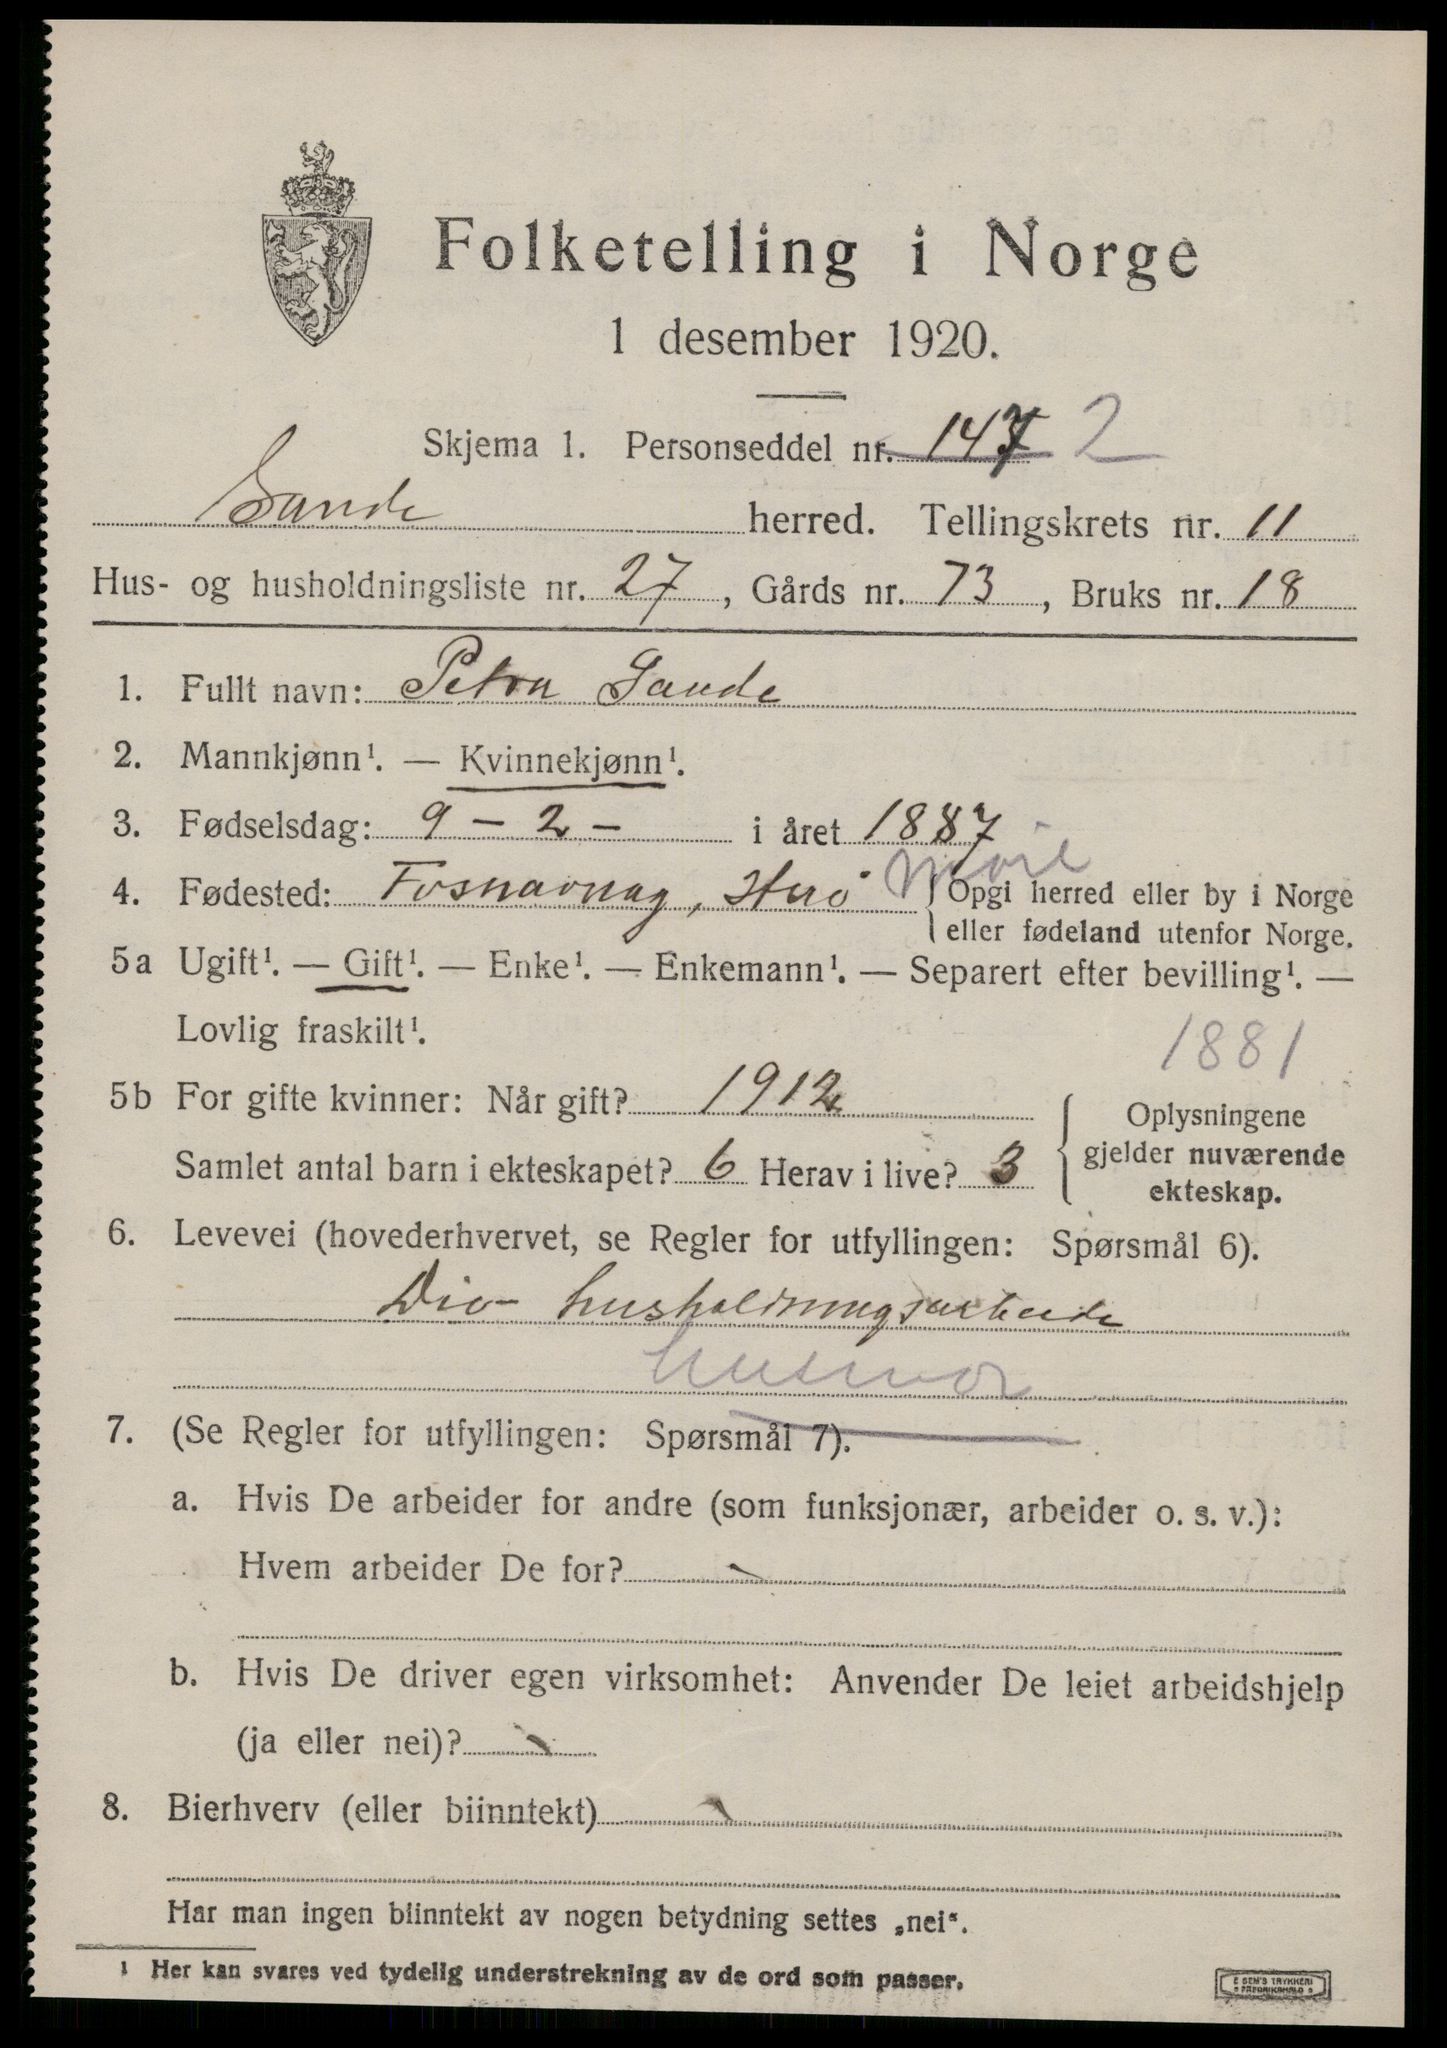 Folketelling i Norge
1 desember 1920.
Skjema 1. Personseddel nr. 147 2
Sande herred. Tellingskrets nr. 11
Hus- og husholdningsliste nr. 27, Gårds nr. 73, Bruks nr. 18
1. Fullt navn: Petra Sande
2. Mannkjønn¹. — Kvinnekjønn¹.
3. Fødselsdag: 9 - 2 - i året 1887
4. Fødested: Fosnavaag, Herö Møre { Opgi herred eller by i Norge
eller fødeland utenfor Norge.
5a Ugift¹. — Gift¹. — Enke¹. — Enkemann¹. — Separert efter bevilling¹. —
Lovlig fraskilt¹.
1881
5b For gifte kvinner: Når gift? 1912
Samlet antal barn i ekteskapet? 6 Herav i live? 3
{ Oplysningene
gjelder nuværende
ekteskap.
6. Levevei (hovederhvervet, se Regler for utfyllingen: Spørsmål 6).
Div husholdningsarbeide
husmor
7. (Se Regler for utfyllingen: Spørsmål 7).
a. Hvis De arbeider for andre (som funksjonær, arbeider o. s. v.):
Hvem arbeider De for? -
b. Hvis De driver egen virksomhet: Anvender De leiet arbeidshjelp
(ja eller nei)? -
8. Bierhverv (eller biinntekt) -
Har man ingen biinntekt av nogen betydning settes „nei“.
1 Her kan svares ved tydelig understrekning av de ord som passer.
E SEM'S TRYKKERI
FREDRIKSHALD